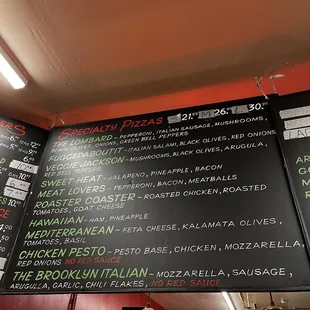 SPECIALTY PIZZAS S 21.99 M 26. L 30.
THE LOMBARD - PEPPERONI, ITALIAN SAUSAGE, MUSHROOMS,
BLACK OLIVES, ONIONS, GREEN BELL PEPPERS
FUGGEDABOUTIT - ITALIAN SALAMI, BLACK OLIVES, RED ONIONS
VEGGIE JACKSON - MUSHROOMS, BLACK OLIVES, ARUGULA,
RED BELL PEPPERS
SWEET HEAT - JALAPENO, PINEAPPLE, BACON
MEAT LOVERS - PEPPERONI, BACON, MEATBALLS
ROASTER COASTER - ROASTED CHICKEN, ROASTED
TOMATOES, GOAT CHEESE
HAWAIIAN - HAM, PINEAPPLE
MEDITERRANEAN - FETA CHEESE, KALAMATA OLIVES,
TOMATOES, BASIL
CHICKEN PESTO - PESTO BASE, CHICKEN, MOZZARELLA,
RED ONIONS NO RED SAUCE
THE BROOKLYN ITALIAN - MOZZARELLA, SAUSAGE,
ARUGULLA, GARLIC, CHILI FLAKES, NO RED SAUCE